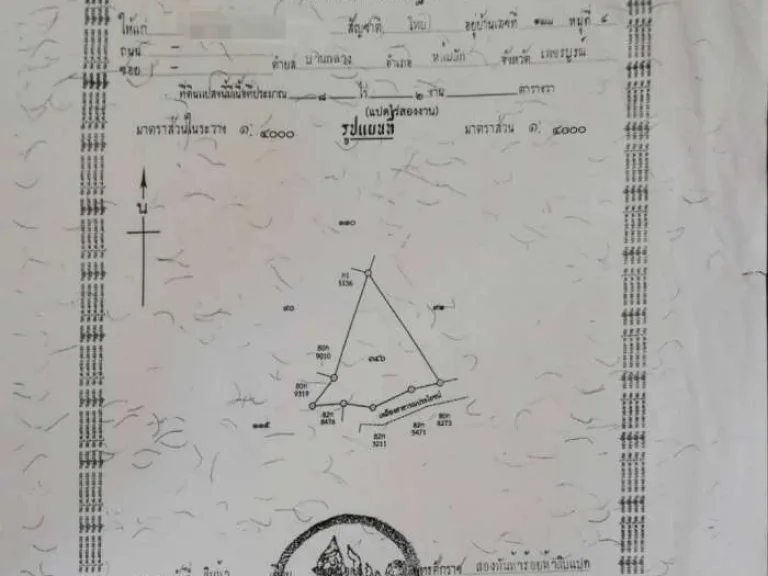 ให้แก่ สัญชาติ ไทย อยู่บ้านเลขที่ ๑๗๗ หมู่ที่ ๔
ถนน –
ซอย – ตำบล บ้านกลาง อำเภอ หล่มสัก จังหวัด เพชรบูรณ์
ที่ดินแปลงนี้มีเนื้อที่ประมาณ ๘ ไร่ ๒ งาน ตารางวา
(แปดไร่สองงาน)
มาตราส่วนในระวาง ๑: ๔๐๐๐ รูปแผนที่ มาตราส่วน ๑: ๔๐๐๐
น
๑๑๐
5236
๙๐ ๙๑
80ก
9010
๓๔๖
80ก
9319
82ก
8476
เหมืองสาธารณประโยชน์
๑๑๕
82ก
5211
82ก
5471
80ก
8273
สองพันห้าร้อยห้าสิบแปด